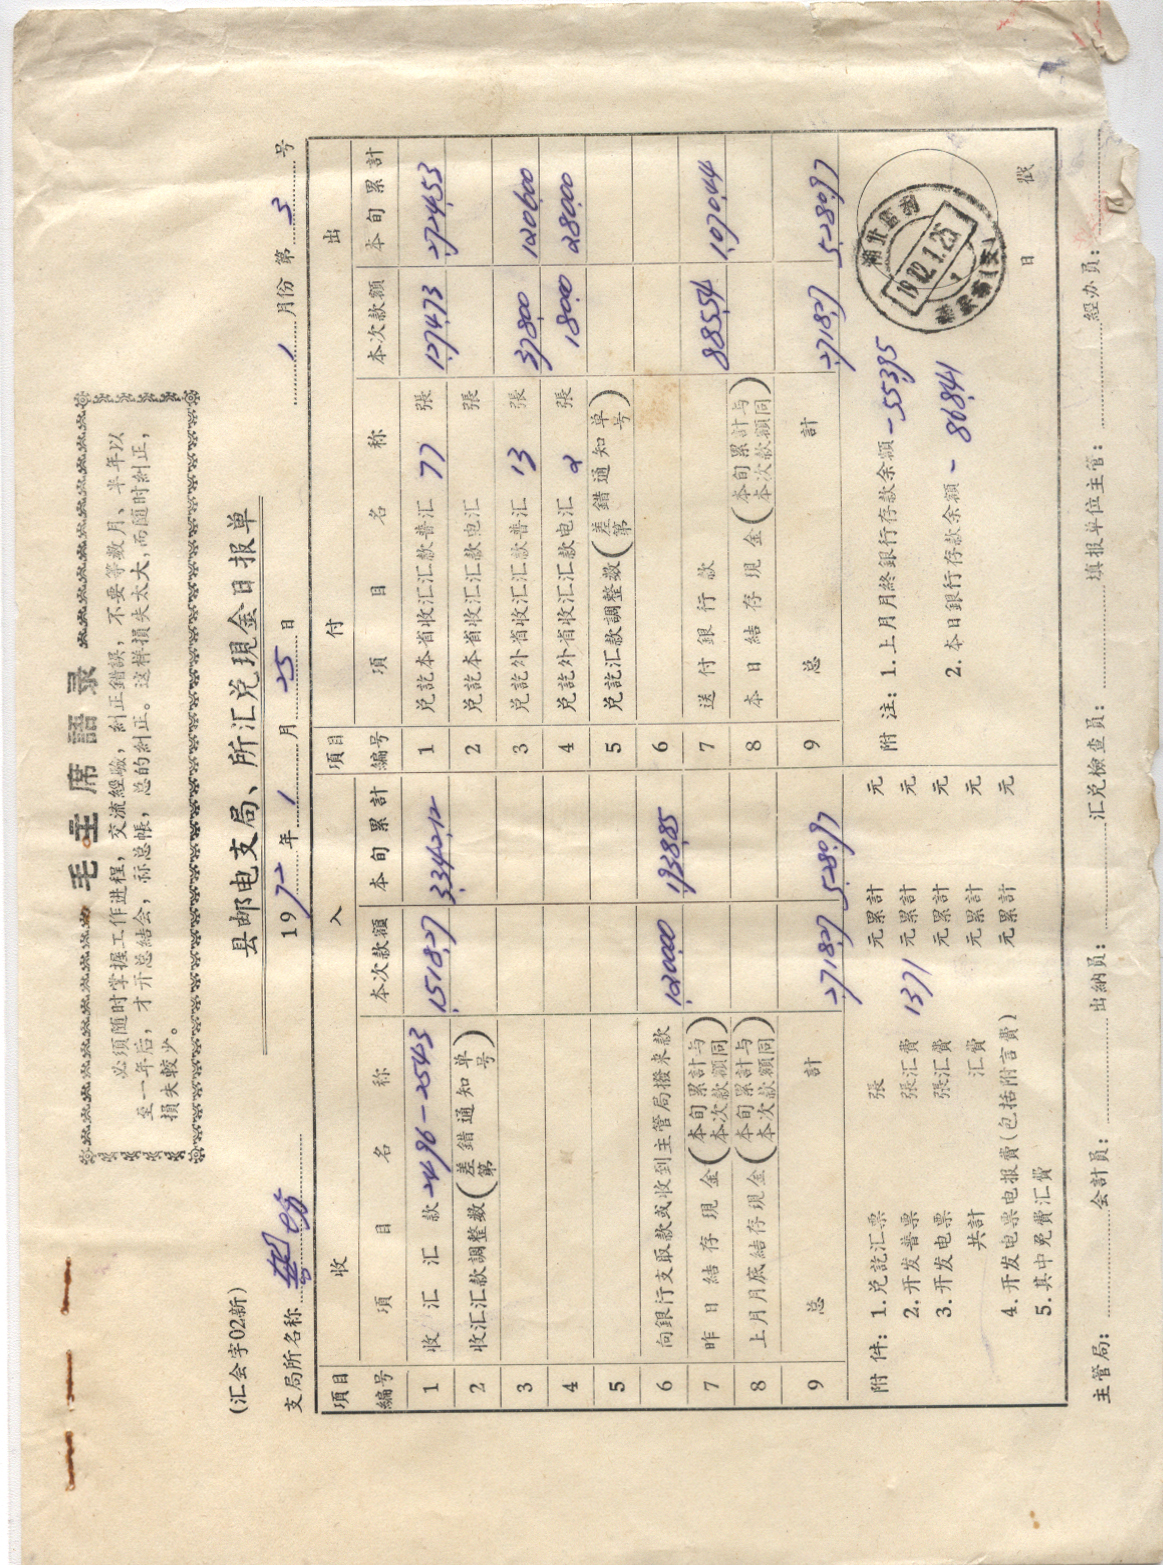 毛主席語录
必须随时掌握工作进程，交流經驗，糾正错誤，不要等数月、半年以
至一年后，才开总結会，祘总帐，总的糾正。这样損失太大，而随时糾正，
損失較少。
(汇会字02新)
县邮电支局、所汇兑現金日报单
支局所名称
1972年1月25日
1月份第3号
收入
付出
項目編号 項目名称 本次款額 本旬累計 項目編号 項目名称 本次款額 本旬累計
1 收汇汇款 2496-2543 1518.27 3342.12 1 兑訖本省收汇汇款普汇 77 張 1274.73 2724.53
2 收汇汇款調整数(差錯通知单第号) 2 兑訖本省收汇汇款电汇 張
3 3 兑訖外省收汇汇款普汇 13 張 378.00 1206.00
4 4 兑訖外省收汇汇款电汇 2 張 180.00 280.00
5 5 兑訖汇款調整数(差錯通知单第号)
6 向銀行支取款或收到主管局撥来款 1200.00 1938.85 6
7 昨日結存現金(本旬累計与本次款額同) 7 送付銀行款 885.54 1070.44
8 上月月底結存現金(本旬累計与本次款額同) 8 本日結存現金(本旬累計与本次款額同)
9 总計 2718.27 5280.97 9 总計 2718.27 5280.97
附件：1.兑訖汇票 張 元累計 元
2.开发普票 張汇費 1371 元累計 元
3.开发电票 張汇費 元累計 元
共計 汇費 元累計 元
4.开发电票电报費(包括附言費) 元累計 元
5.其中免費汇費
附注：1.上月月終銀行存款余額-553.95
2.本日銀行存款余額-868.41
湖北
1972.1.25
日戳
主管局： 会計員： 出納員： 汇兑檢查員： 填报单位主管： 經办員：